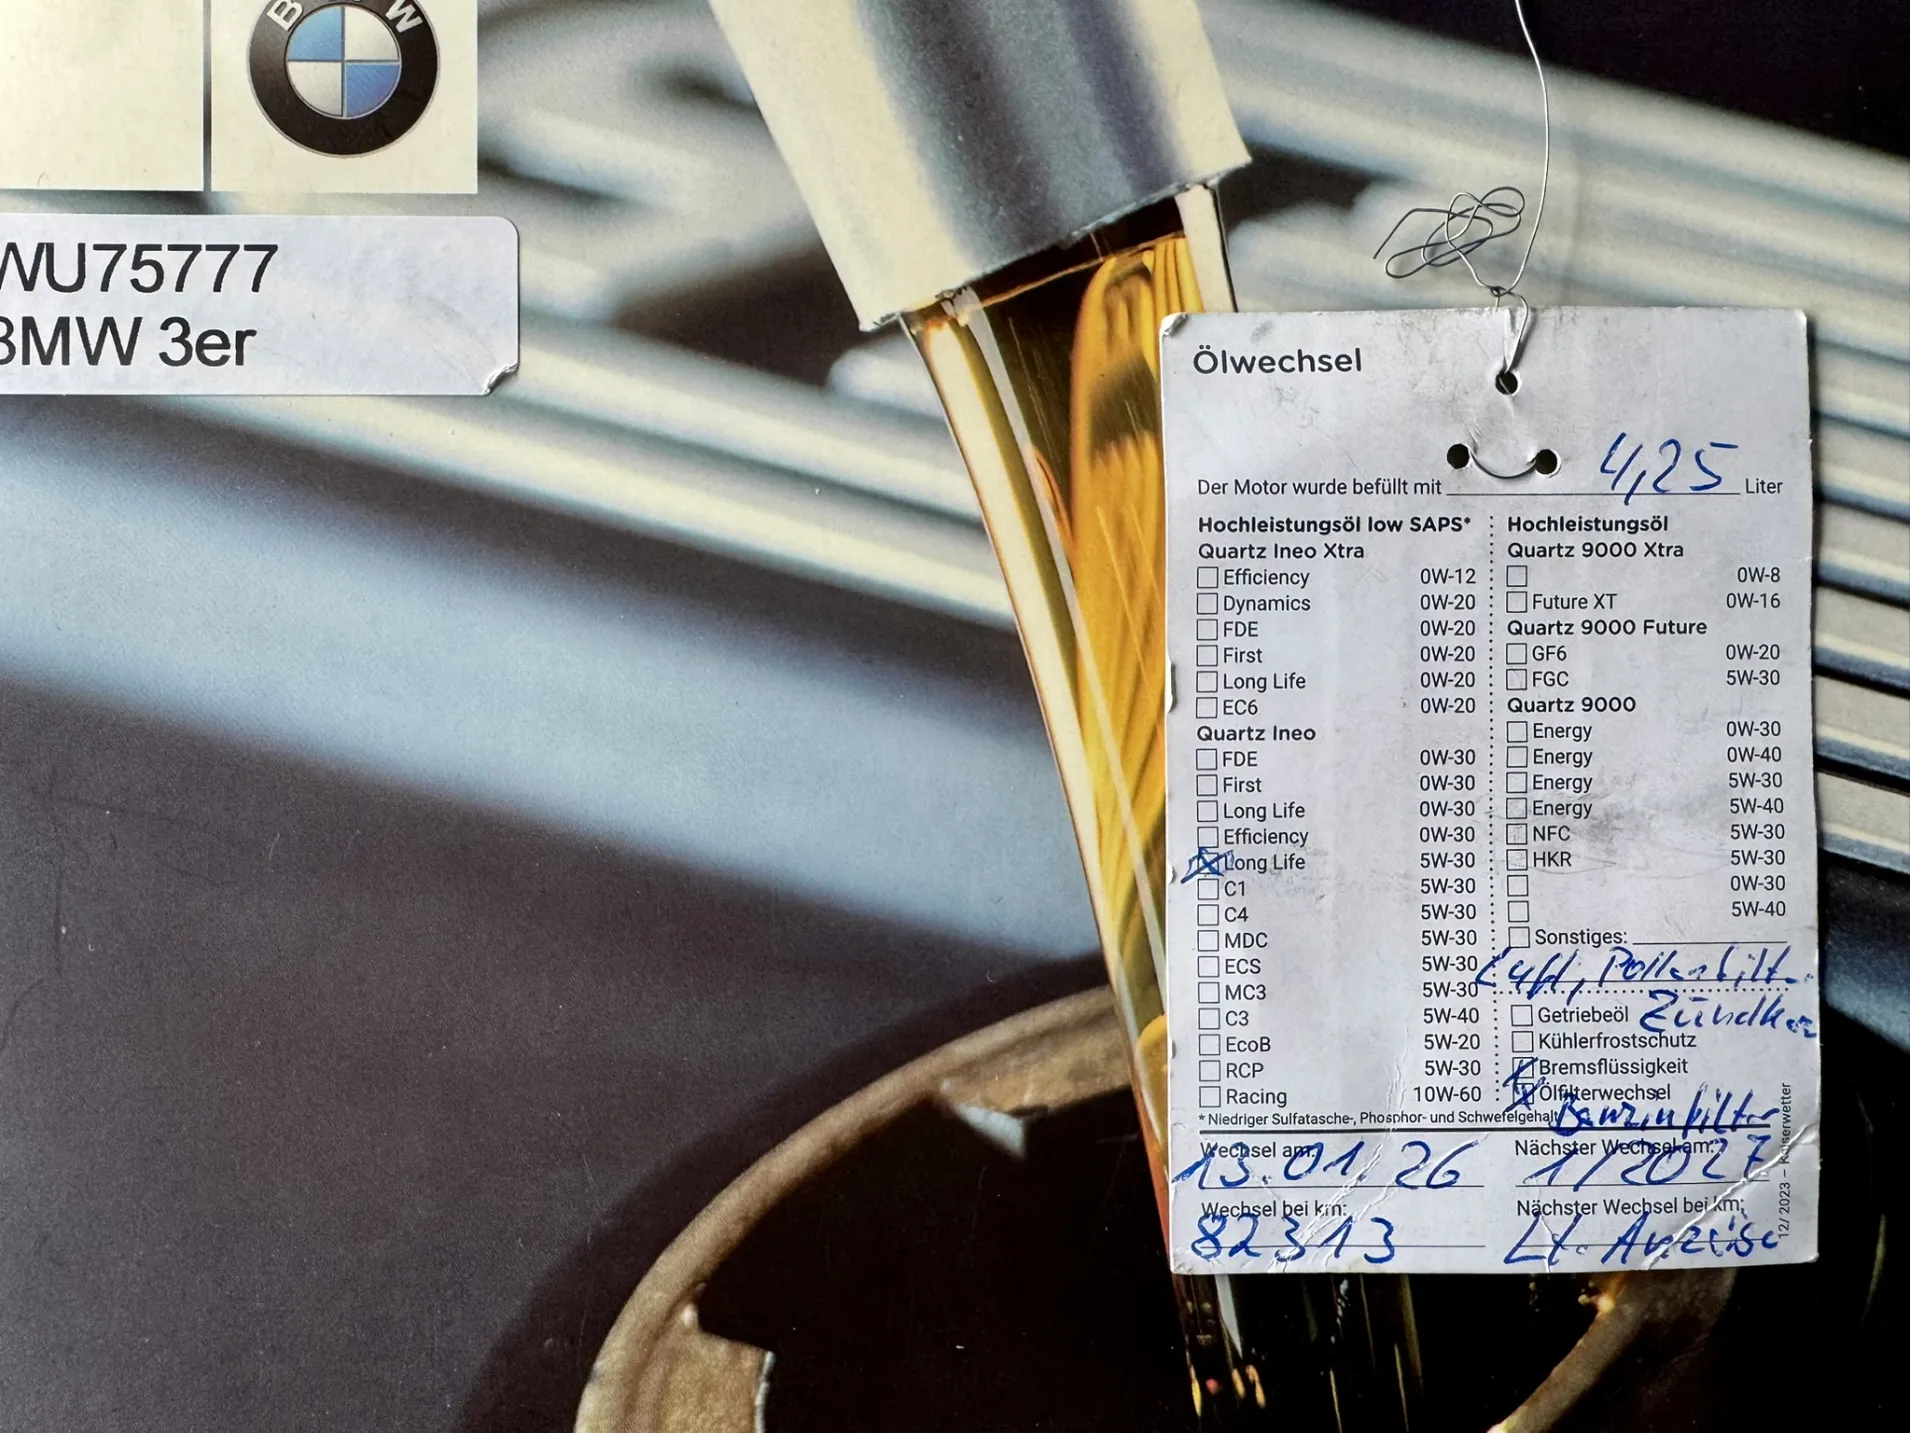 BMW
WU75777
BMW 3er
Ölwechsel
Der Motor wurde befüllt mit 4,25 Liter
Hochleistungsöl low SAPS*
Quartz Ineo Xtra
Efficiency 0W-12
Dynamics 0W-20
FDE 0W-20
First 0W-20
Long Life 0W-20
EC6 0W-20
Quartz Ineo
FDE 0W-30
First 0W-30
Long Life 0W-30
Efficiency 0W-30
Long Life 5W-30
C1 5W-30
C4 5W-30
MDC 5W-30
ECS 5W-30
MC3 5W-30
C3 5W-40
EcoB 5W-20
RCP 5W-30
Racing 10W-60
Hochleistungsöl
Quartz 9000 Xtra
0W-8
Future XT 0W-16
Quartz 9000 Future
GF6 0W-20
FGC 5W-30
Quartz 9000
Energy 0W-30
Energy 0W-40
Energy 5W-30
Energy 5W-40
NFC 5W-30
HKR 5W-30
0W-30
5W-40
Sonstiges:
Luft, Pollenfilter
Getriebeöl
Kühlerfrostschutz
Bremsflüssigkeit
Ölfilterwechsel
Benzinfilter
* Niedriger Sulfatasche-, Phosphor- und Schwefelgehalt
Wechsel am:
13.01.26
Nächster Wechsel am:
1/2027
Wechsel bei km:
82313
Nächster Wechsel bei km:
Lt. Anzeige
12/2023 – Kaiserwetter